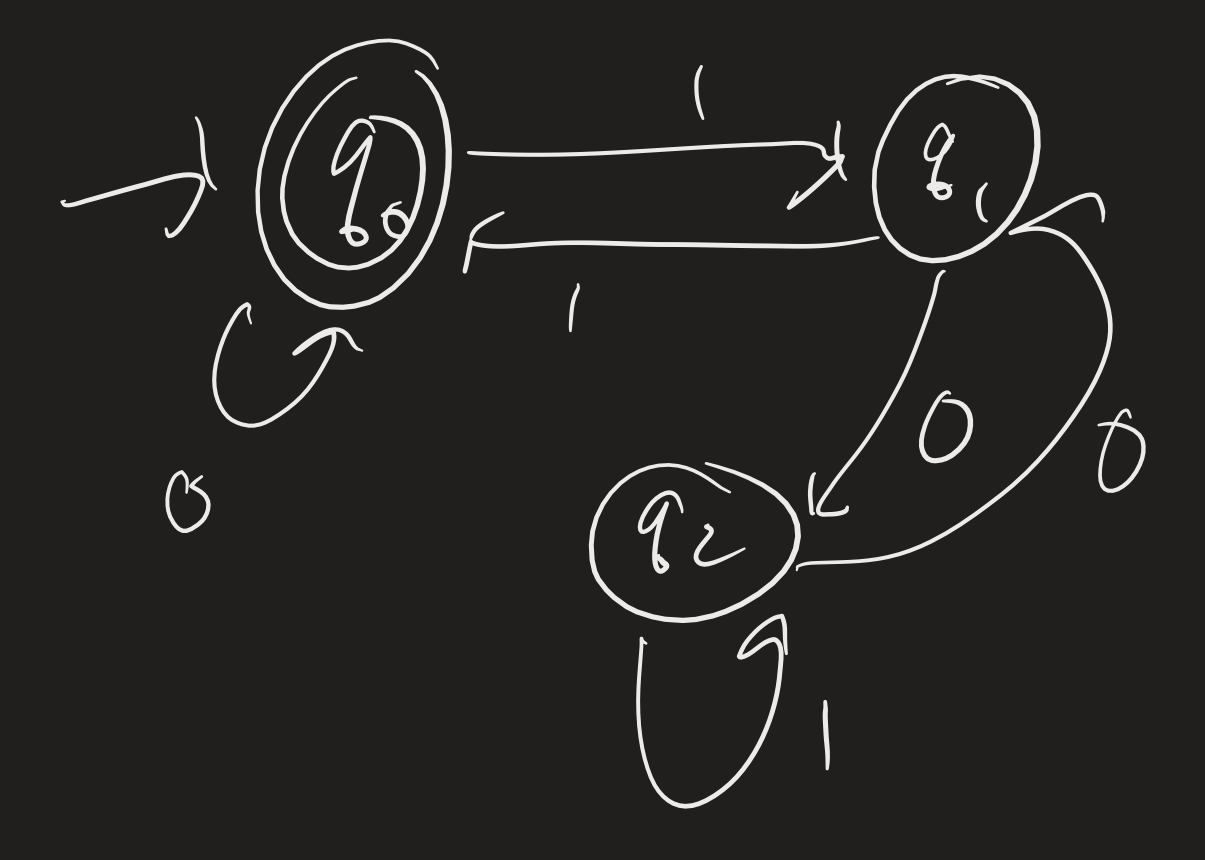 1
q0
q1
1
0
0
0
q2
1